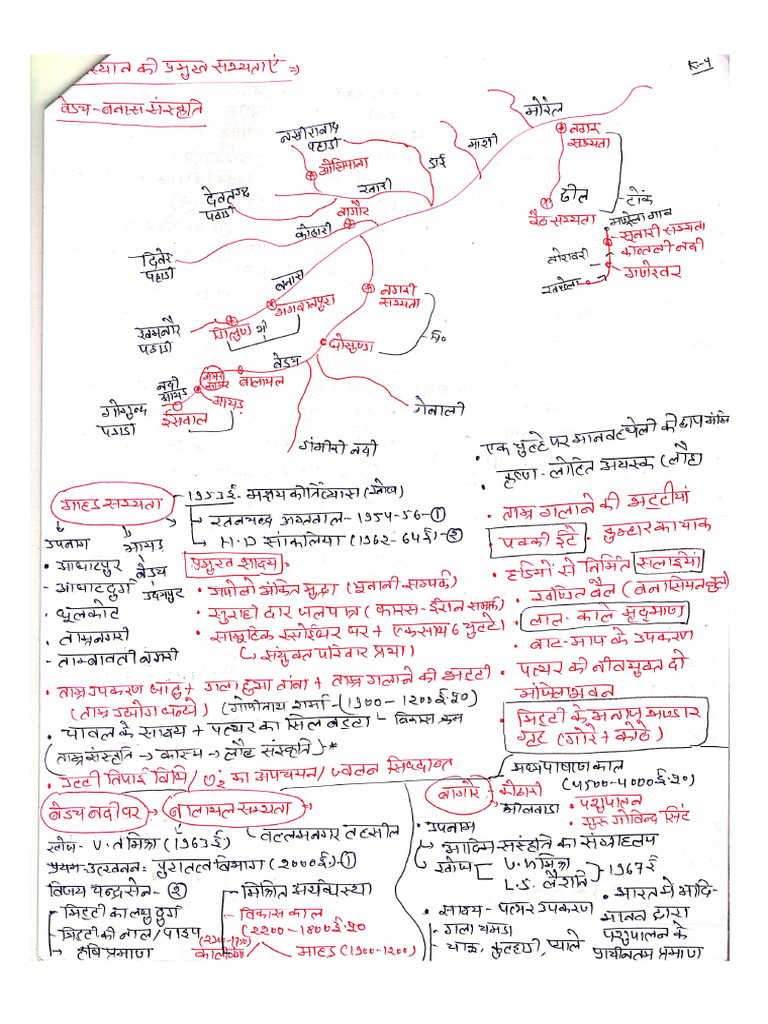 स्थान की प्रमुख सभ्यताएं ⇒
K-4
बेडच-बनास संस्कृति
मोरेल
नगर सभ्यता
माशी
डाई
नसीराबाद पहाडी
ओझियाना
खारी
देवगढ़ पहाडी
बागौर
कोठारी
दिवेर पहाडी
ढील
रैढ सभ्यता
टोंक
सुनारी सभ्यता
कान्तली नदी
गणेश्वर
तोरावटी
खण्डेला
बनास
नगरी सभ्यता
भगवानपुरा
गिलुण्ड
भी
खमनौर पहाडी
चि०
बेडच
बालाथल
नदी आयड
आयड
ईसवाल
गोगुन्दा पहाडी
गंभीरी नदी
गेनाली
आहड सभ्यता
1953ई. अक्षय कीर्ति व्यास (खोज)
रतनचन्द्र अग्रवाल-1954-56-①
H.D सांकलिया (1962-64ई)-②
उपनाम
आयड़ बेडच उदयपुर
• आघाटपुर
- आघाटदुर्ग
• धूलकोट
• ताम्रनगरी
- ताम्बावती नगरी
प्रमुख साक्ष्य
• अपोलो अंकित मुद्रा (यूनानी सम्पर्क)
• सुराही दार जलपात्र (फारस-ईरान सम्पर्क)
• सामूहिक रसोईघर पर + एकसाथ 6 चुल्हे
संयुक्त परिवार प्रथा)
• ताम्र उपकरण धातु + गला हुआ तांबा + ताम्र गलाने की भट्टी
(ताम्र उद्योग धन्धे) (गोपीनाथ शर्मा-(1900-1200ई.पू०)
• चावल के साक्ष्य + पत्थर का सिल बट्टा विकास क्रम
(ताम्र संस्कृति → कास्य → लौह संस्कृति)-*
• उल्टी तिपाई विधि/ O₂ का अपचयन/ ज्वलन सिध्दान्त
एक चुल्हे पर मानव हथेली की छाप अंकित
• कृष्ण-लोहित अयस्क (लौह)
• ताम्र गलाने की भट्टीयां
पक्की ईटे • कुम्हार का चाक
• हड्डियों से निर्मित सलाइयां
• खण्डित बैल (बनासियन बुल)
• लाल-काले मृदभाण्ड
• बाट-माप के उपकरण
• पत्थर की नीवयुक्त दो मंजिला भवन
• मिट्टी के अनाज भण्डार गृह (गोरे + कोठे)
बेडच नदी पर → बालाथल सभ्यता
वल्लभनगर तहसील
खोज- V.N मिश्रा (1963ई)
प्रथम उत्खनन: पुरातत्व विभाग (2000ई)-①
विजय चन्द्रसेन-②
- मिट्टी का लघु दुर्ग
- मिट्टी की नाल/पाइप
कृषि प्रमाण
मिश्रित अर्थव्यस्था
विकास काल
(2200-1800ई.पू०
आहड (1900-1200)
बागौर
मध्यपाषाण काल
(4500-4000ई.पू०)
कोठारी
भीलवाडा
• पशुपालन
गुरु गोविन्द सिंह
• उपनाम
आदिम संस्कृति का संग्रहालय
• खोज
V.N मिश्रा
L.S. लैशनि
1967ई
• साक्ष्य- पत्थर उपकरण
- गला चमडा
चाकु, कुल्हाडी, प्याले
• भारत मे आदि-
मानव द्वारा
पशुपालन के
प्राचीनतम प्रमाण